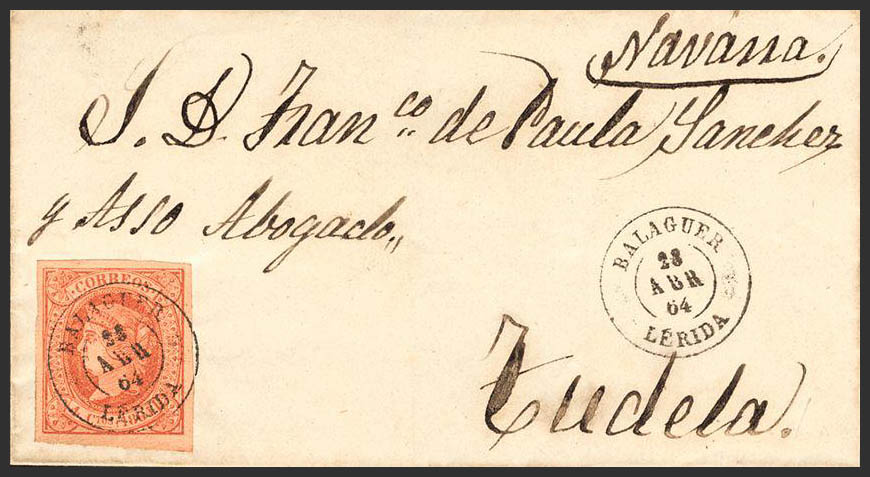 Navarra.
S. D. Fran.co de Paula Sanchez
y Asso Abogado,,
BALAGUER
28
ABR
64
LÉRIDA
CORREOS
BALAGUER
28
ABR
64
LÉRIDA
Tudela.